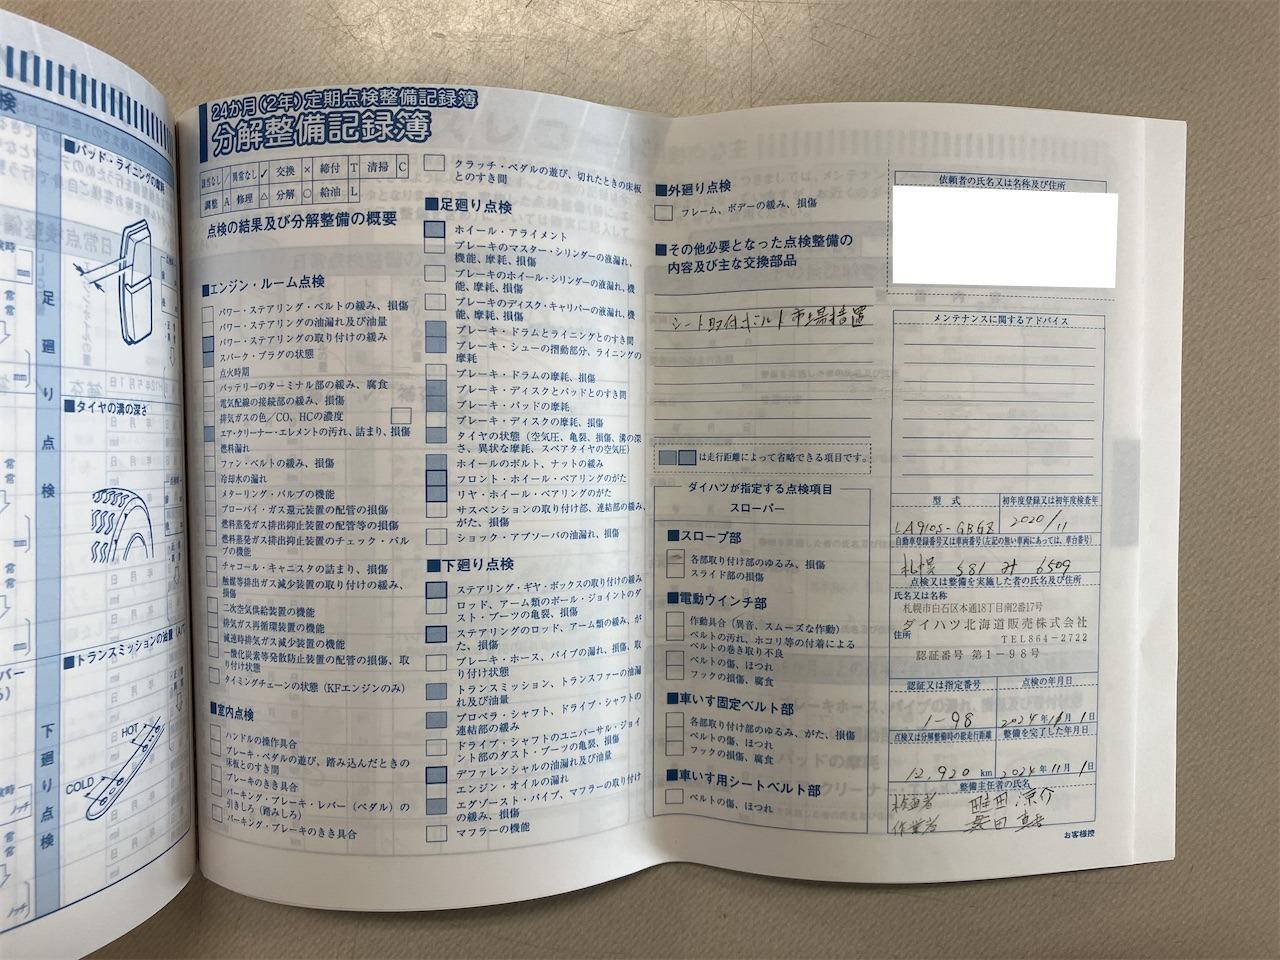 ■パッド・ライニングの摩耗
足廻り点検
■タイヤの溝の深さ
■トランスミッションの油量
HOT
COLD
下廻り点検
24か月(2年)定期点検整備記録簿
分解整備記録簿
該当なし / 異常なし ✓ 交換 × 締付 T 清掃 C
調整 A 修理 △ 分解 ○ 給油 L
点検の結果及び分解整備の概要
■エンジン・ルーム点検
パワー・ステアリング・ベルトの緩み、損傷
パワー・ステアリングの油漏れ及び油量
パワー・ステアリングの取り付けの緩み
スパーク・プラグの状態
点火時期
バッテリーのターミナル部の緩み、腐食
電気配線の接続部の緩み、損傷
排気ガスの色/CO、HCの濃度
エア・クリーナー・エレメントの汚れ、詰まり、損傷
燃料漏れ
ファン・ベルトの緩み、損傷
冷却水の漏れ
メターリング・バルブの機能
ブローバイ・ガス還元装置の配管の損傷
燃料蒸発ガス排出抑止装置の配管等の損傷
燃料蒸発ガス排出抑止装置のチェック・バル
ブの機能
チャコール・キャニスタの詰まり、損傷
触媒等排出ガス減少装置の取り付けの緩み、
損傷
二次空気供給装置の機能
排気ガス再循環装置の機能
減速時排気ガス減少装置の機能
一酸化炭素等発散防止装置の配管の損傷、取
り付け状態
タイミングチェーンの状態(KFエンジンのみ)
■室内点検
ハンドルの操作具合
ブレーキ・ペダルの遊び、踏み込んだときの
床板とのすき間
ブレーキのきき具合
パーキング・ブレーキ・レバー(ペダル)の
引きしろ(踏みしろ)
パーキング・ブレーキのきき具合
クラッチ・ペダルの遊び、切れたときの床板
とのすき間
■足廻り点検
ホイール・アライメント
ブレーキのマスター・シリンダーの液漏れ、
機能、摩耗、損傷
ブレーキのホイール・シリンダーの液漏れ、機
能、摩耗、損傷
ブレーキのディスク・キャリパーの液漏れ、機
能、摩耗、損傷
ブレーキ・ドラムとライニングとのすき間
ブレーキ・シューの摺動部分、ライニングの
摩耗
ブレーキ・ドラムの摩耗、損傷
ブレーキ・ディスクとパッドとのすき間
ブレーキ・パッドの摩耗
ブレーキ・ディスクの摩耗、損傷
タイヤの状態(空気圧、亀裂、損傷、溝の深
さ、異状な摩耗、スペアタイヤの空気圧)
ホイールのボルト、ナットの緩み
フロント・ホイール・ベアリングのがた
リヤ・ホイール・ベアリングのがた
サスペンションの取り付け部、連結部の緩み、
がた、損傷
ショック・アブソーバの油漏れ、損傷
■下廻り点検
ステアリング・ギヤ・ボックスの取り付けの緩み
ロッド、アーム類のボール・ジョイントのダ
スト・ブーツの亀裂、損傷
ステアリングのロッド、アーム類の緩み、が
た、損傷
ブレーキ・ホース、パイプの漏れ、損傷、取
り付け状態
トランスミッション、トランスファーの油漏
れ及び油量
プロペラ・シャフト、ドライブ・シャフトの
連結部の緩み
ドライブ・シャフトのユニバーサル・ジョイ
ント部のダスト・ブーツの亀裂、損傷
デファレンシャルの油漏れ及び油量
エンジン・オイルの漏れ
エグゾースト・パイプ、マフラーの取り付け
の緩み、損傷
マフラーの機能
■外廻り点検
フレーム、ボデーの緩み、損傷
■その他必要となった点検整備の
内容及び主な交換部品
シート取付ボルト市場措置
は走行距離によって省略できる項目です。
ダイハツが指定する点検項目
スローパー
■スロープ部
各部取り付け部のゆるみ、損傷
スライド部の損傷
■電動ウインチ部
作動具合(異音、スムーズな作動)
ベルトの汚れ、ホコリ等の付着による
ベルトの巻き取り不良
ベルトの傷、ほつれ
フックの損傷、腐食
■車いす固定ベルト部
各部取り付け部のゆるみ、がた、損傷
ベルトの傷、ほつれ
フックの損傷、腐食
■車いす用シートベルト部
ベルトの傷、ほつれ
依頼者の氏名又は名称及び住所
メンテナンスに関するアドバイス
型式 初年度登録又は初年度検査年
LA910S-GBGZ 2020/11
自動車登録番号又は車両番号(左記の無い車両にあっては、車台番号)
札幌 581 オ 6509
点検又は整備を実施した者の氏名及び住所
氏名又は名称
札幌市白石区本通18丁目南2番17号
ダイハツ北海道販売株式会社
住所 TEL864-2722
認証番号 第1-98号
認証又は指定番号 点検の年月日
1-98 2024年11月1日
点検又は分解整備時の総走行距離 整備を完了した年月日
12,920 km 2024年11月1日
整備主任者の氏名
検査者
作業者
お客様控